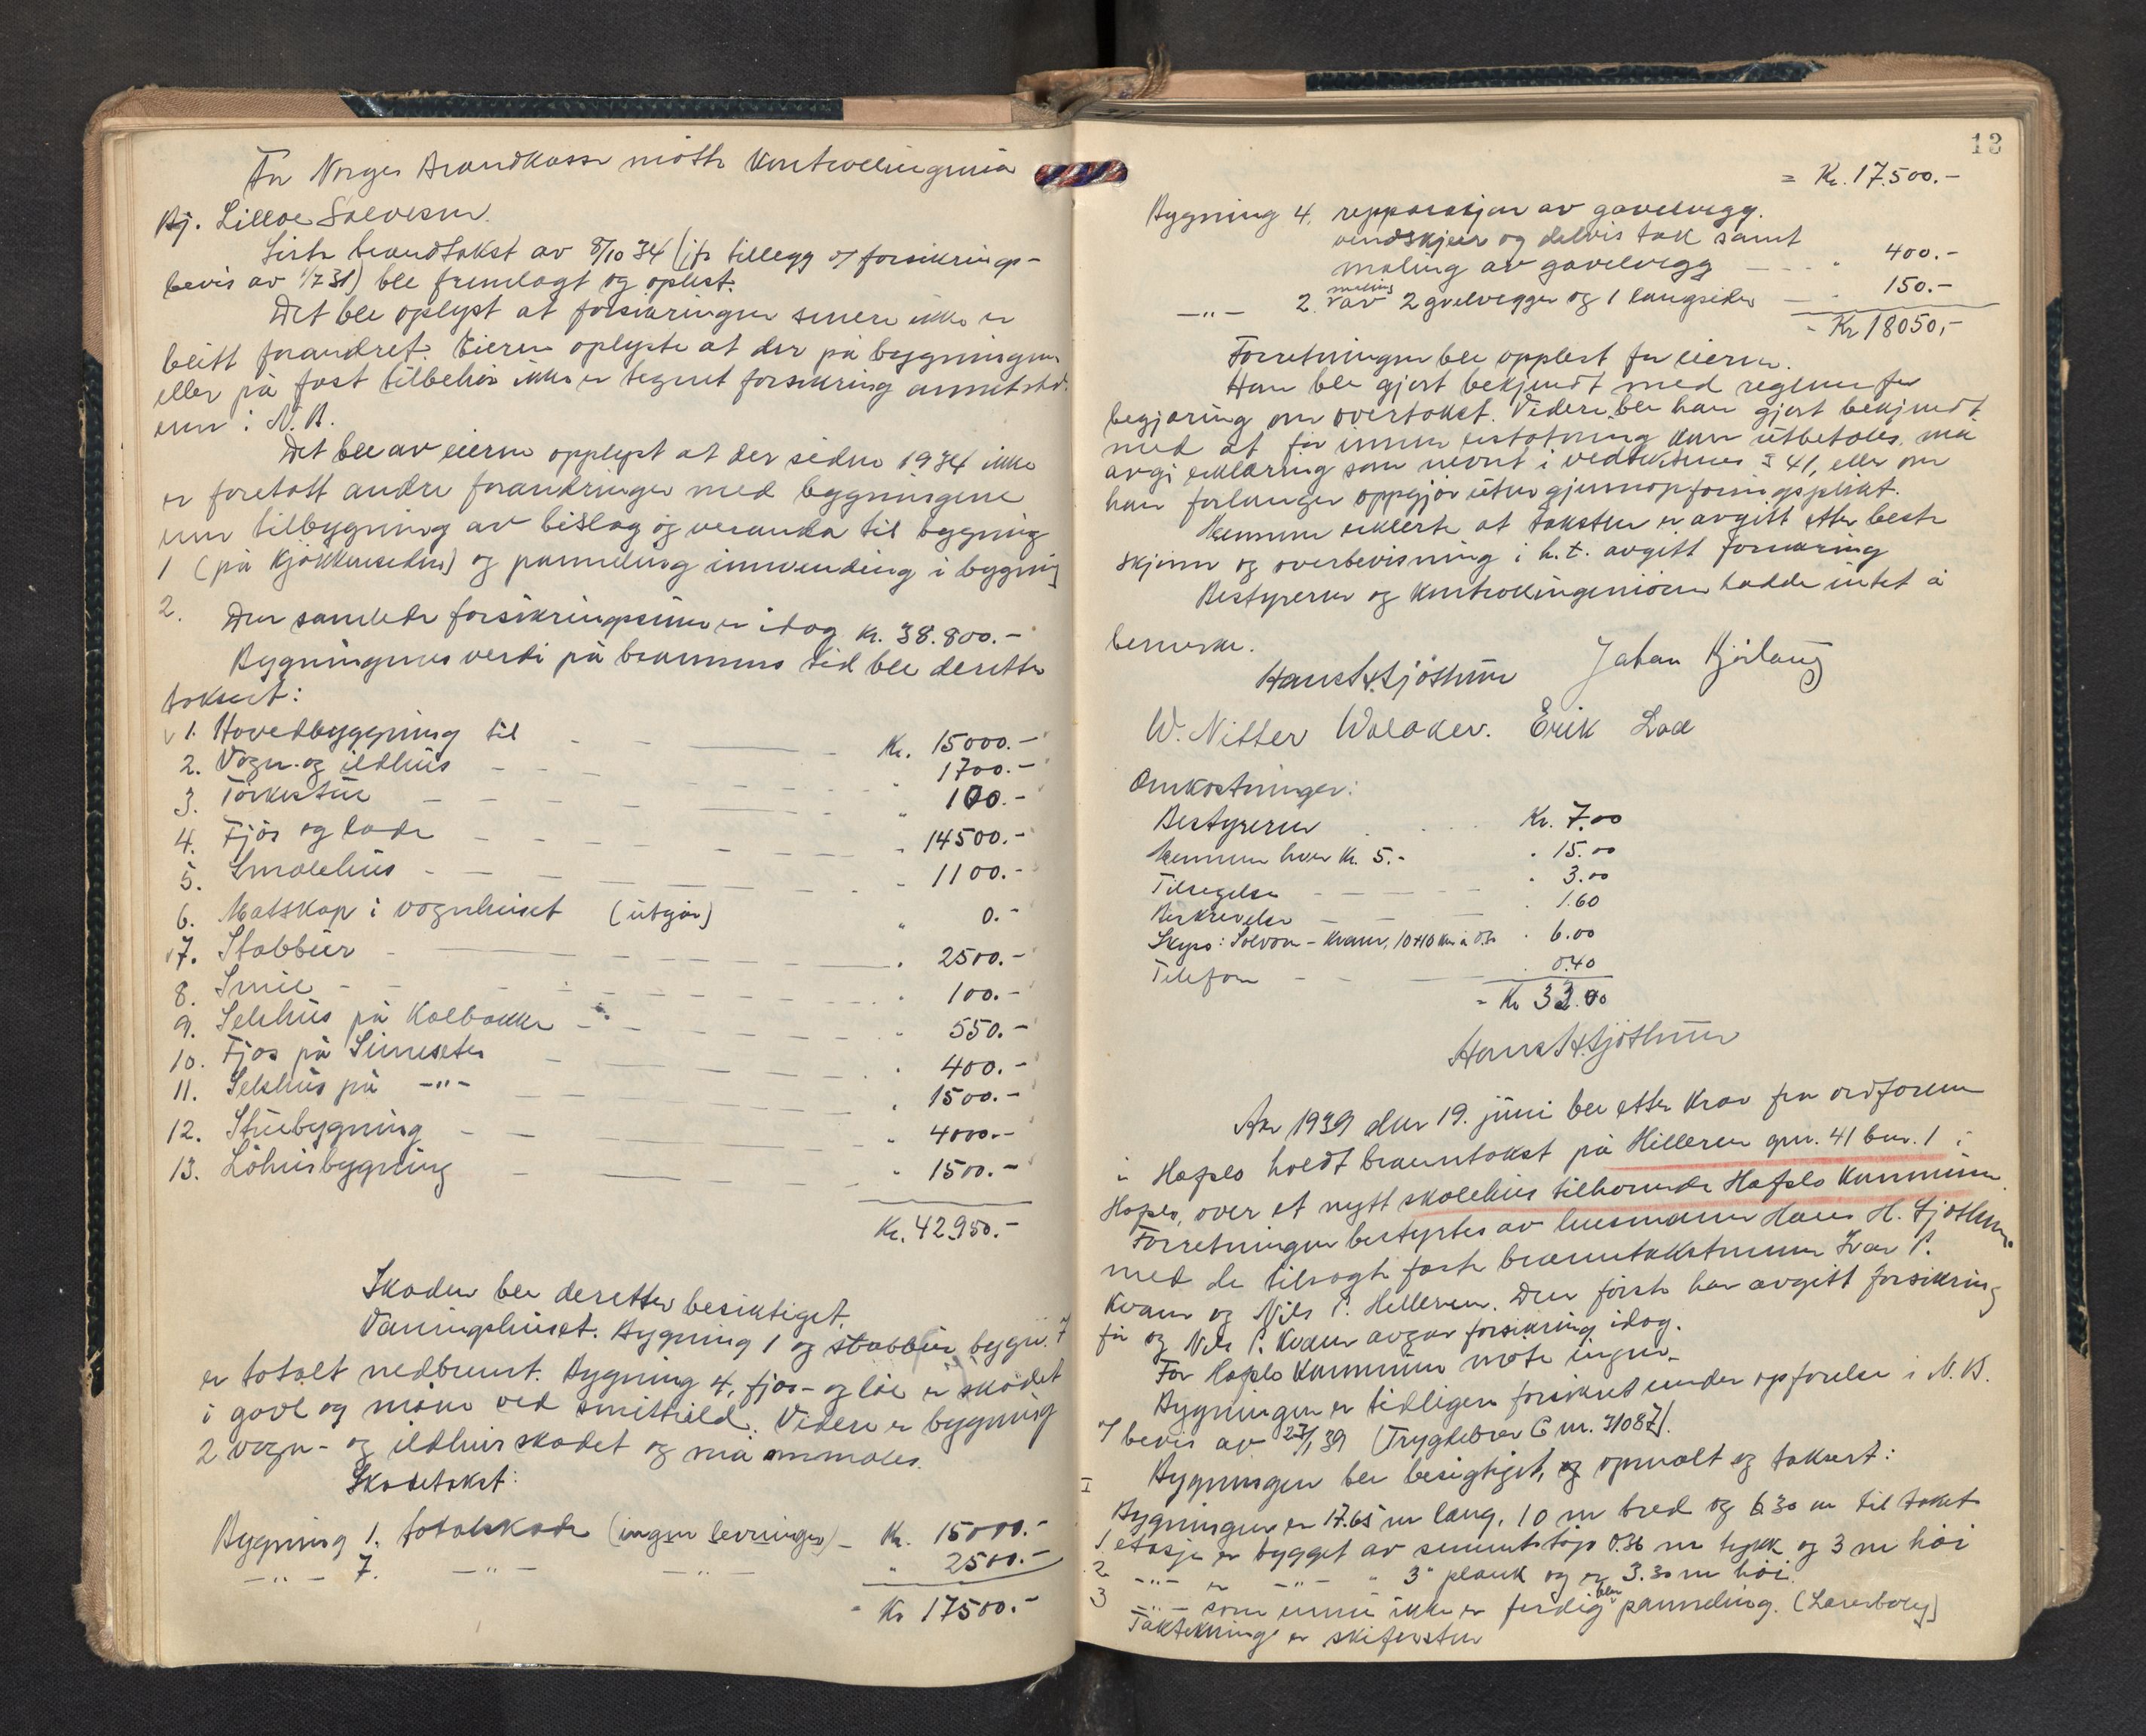 For Norges Brandkasse møtte Kontrollingeniør
Bj. Lilloe Salvesen.
Siste brandtakst av 8/10 34 (jfr tillegg o/ forsikrings-
bevis av 1/7 31) ble fremlagt og oplest.
Det ble oplyst at forsikringen senere ikke er
blitt forandret. Eieren oplyste at der på bygningene
eller på fast tilbehør ikke er tegnet forsikring annetsted
enn i N.B.
Det ble av eieren opplyst at der siden 1934 ikke
er foretatt andre forandringer med bygningene
enn tilbygning av bislag og veranda til bygning
1 (på kjøkkensiden) og panneling innvendig i bygning
2.
Den samlede forsikringssum er idag kr. 38.800.-
Bygningenes verdi på brannens tid ble deretter
taksert:
1. Hovedbyggning til Kr. 15000.-
2. Vogn- og ildhus 1700.-
3. Tørkestue 100.-
4. Fjøs og lade 14500.-
5. Smalehus 1100.-
6. Matskap i vognhuset (utgår) 0.-
7. Stabbur 2500.-
8. Smie 100.-
9. Selshus på Kolbakke 550.-
10. Fjøs på Simeseter 400.-
11. Selshus på -"- 1500.-
12. Stuebygning 4000.-
13. Løhusbygning 1500.-
Kr. 42950.-
Skaden ble deretter besiktiget.
Våningshuset. Bygning 1 og stabbur bygn. 7
er totalt nedbrent. Bygning 4, fjøs- og løe er skadet
i gavl og møne ved smitteild. Videre er bygning
2 vogn- og ildhus skadet og må ommales.
Skadetakst:
Bygning 1. totalskade (ingen levninger) - Kr. 15000.-
-"- 7. -"- -"- " 2500.-
= Kr 17500.-
13
= Kr. 17.500.-
Bygning 4. repparasjon av gavelvegg.
vindskjeer og delvis tak samt
maling av gavelvegg " 400.-
-"- 2. maling av 2 gvelvegger og 1 langsider " 150.-
= Kr 18050,-
Forretningen ble opplest for eieren.
Han ble gjort bekjendt med reglene for
begjæring om overtakst. Videre ble han gjort bekjendt
med at før innen erstatning kan utbetales, må
avgi erklæring som nevnt i vedtektenes § 41, eller om
han forlanger oppgjør uten gjenopføringsplikt.
Mennene erklerte at taksten er avgitt efter beste
skjønn og overbevisning i h.t. avgitt forsikring
Bestyreren og kontrollingeniøren hadde intet å
bemerke.
Hans H. Sjøthun Johan Bjørlaug
W. Nitter Walaker. Erik Lad
Omkostninger:
Bestyreren Kr. 7.00
Mennene hver kr. 5.- " 15.00
Tilsigelse " 3.00
Beskrivelse " 1.60
Skyss: Solvorn - Kvam, 10+10 km à 0.30 " 6.00
Telefon 0.40
= Kr 33.00
Hans H. Sjøthun
Aar 1939 den 19. juni ble etter krav fra ordføreren
i Hafslo holdt branntakst på Hilleren gnr. 41 bnr. 1 i
Hafslo, over et nytt skolehus tilhørende Hafslo Kommune.
Forretningen bestyrtes av lensmann Hans H. Sjøthun
med de tilsagte faste branntakstmenn Ivar P.
Kvam og Nils P. Hilleren. Den første har avgitt forsikring
før og Nils P. Kvam avgav forsikring idag.
For Hafslo Kommune møtte ingen.
Bygningen er tidligere forsikret under opførelse i N.B.
o/ bevis av 27/1 39 (Trygdebrev C nr. 31087).
Bygningen ble besigtiget, og opmålt og taksert:
I
Bygningen er 17.65 m lang, 10 m bred og 6.30 m til taket
1 etasje er bygget av sementstøp 0.36 m tykk og 3 m høi
2 -"- er -"- " 3" plank og er 3.30 m høi.
3 -"- som ennu ikke er ferdig blir panneling.
Taktekning er skiferstein